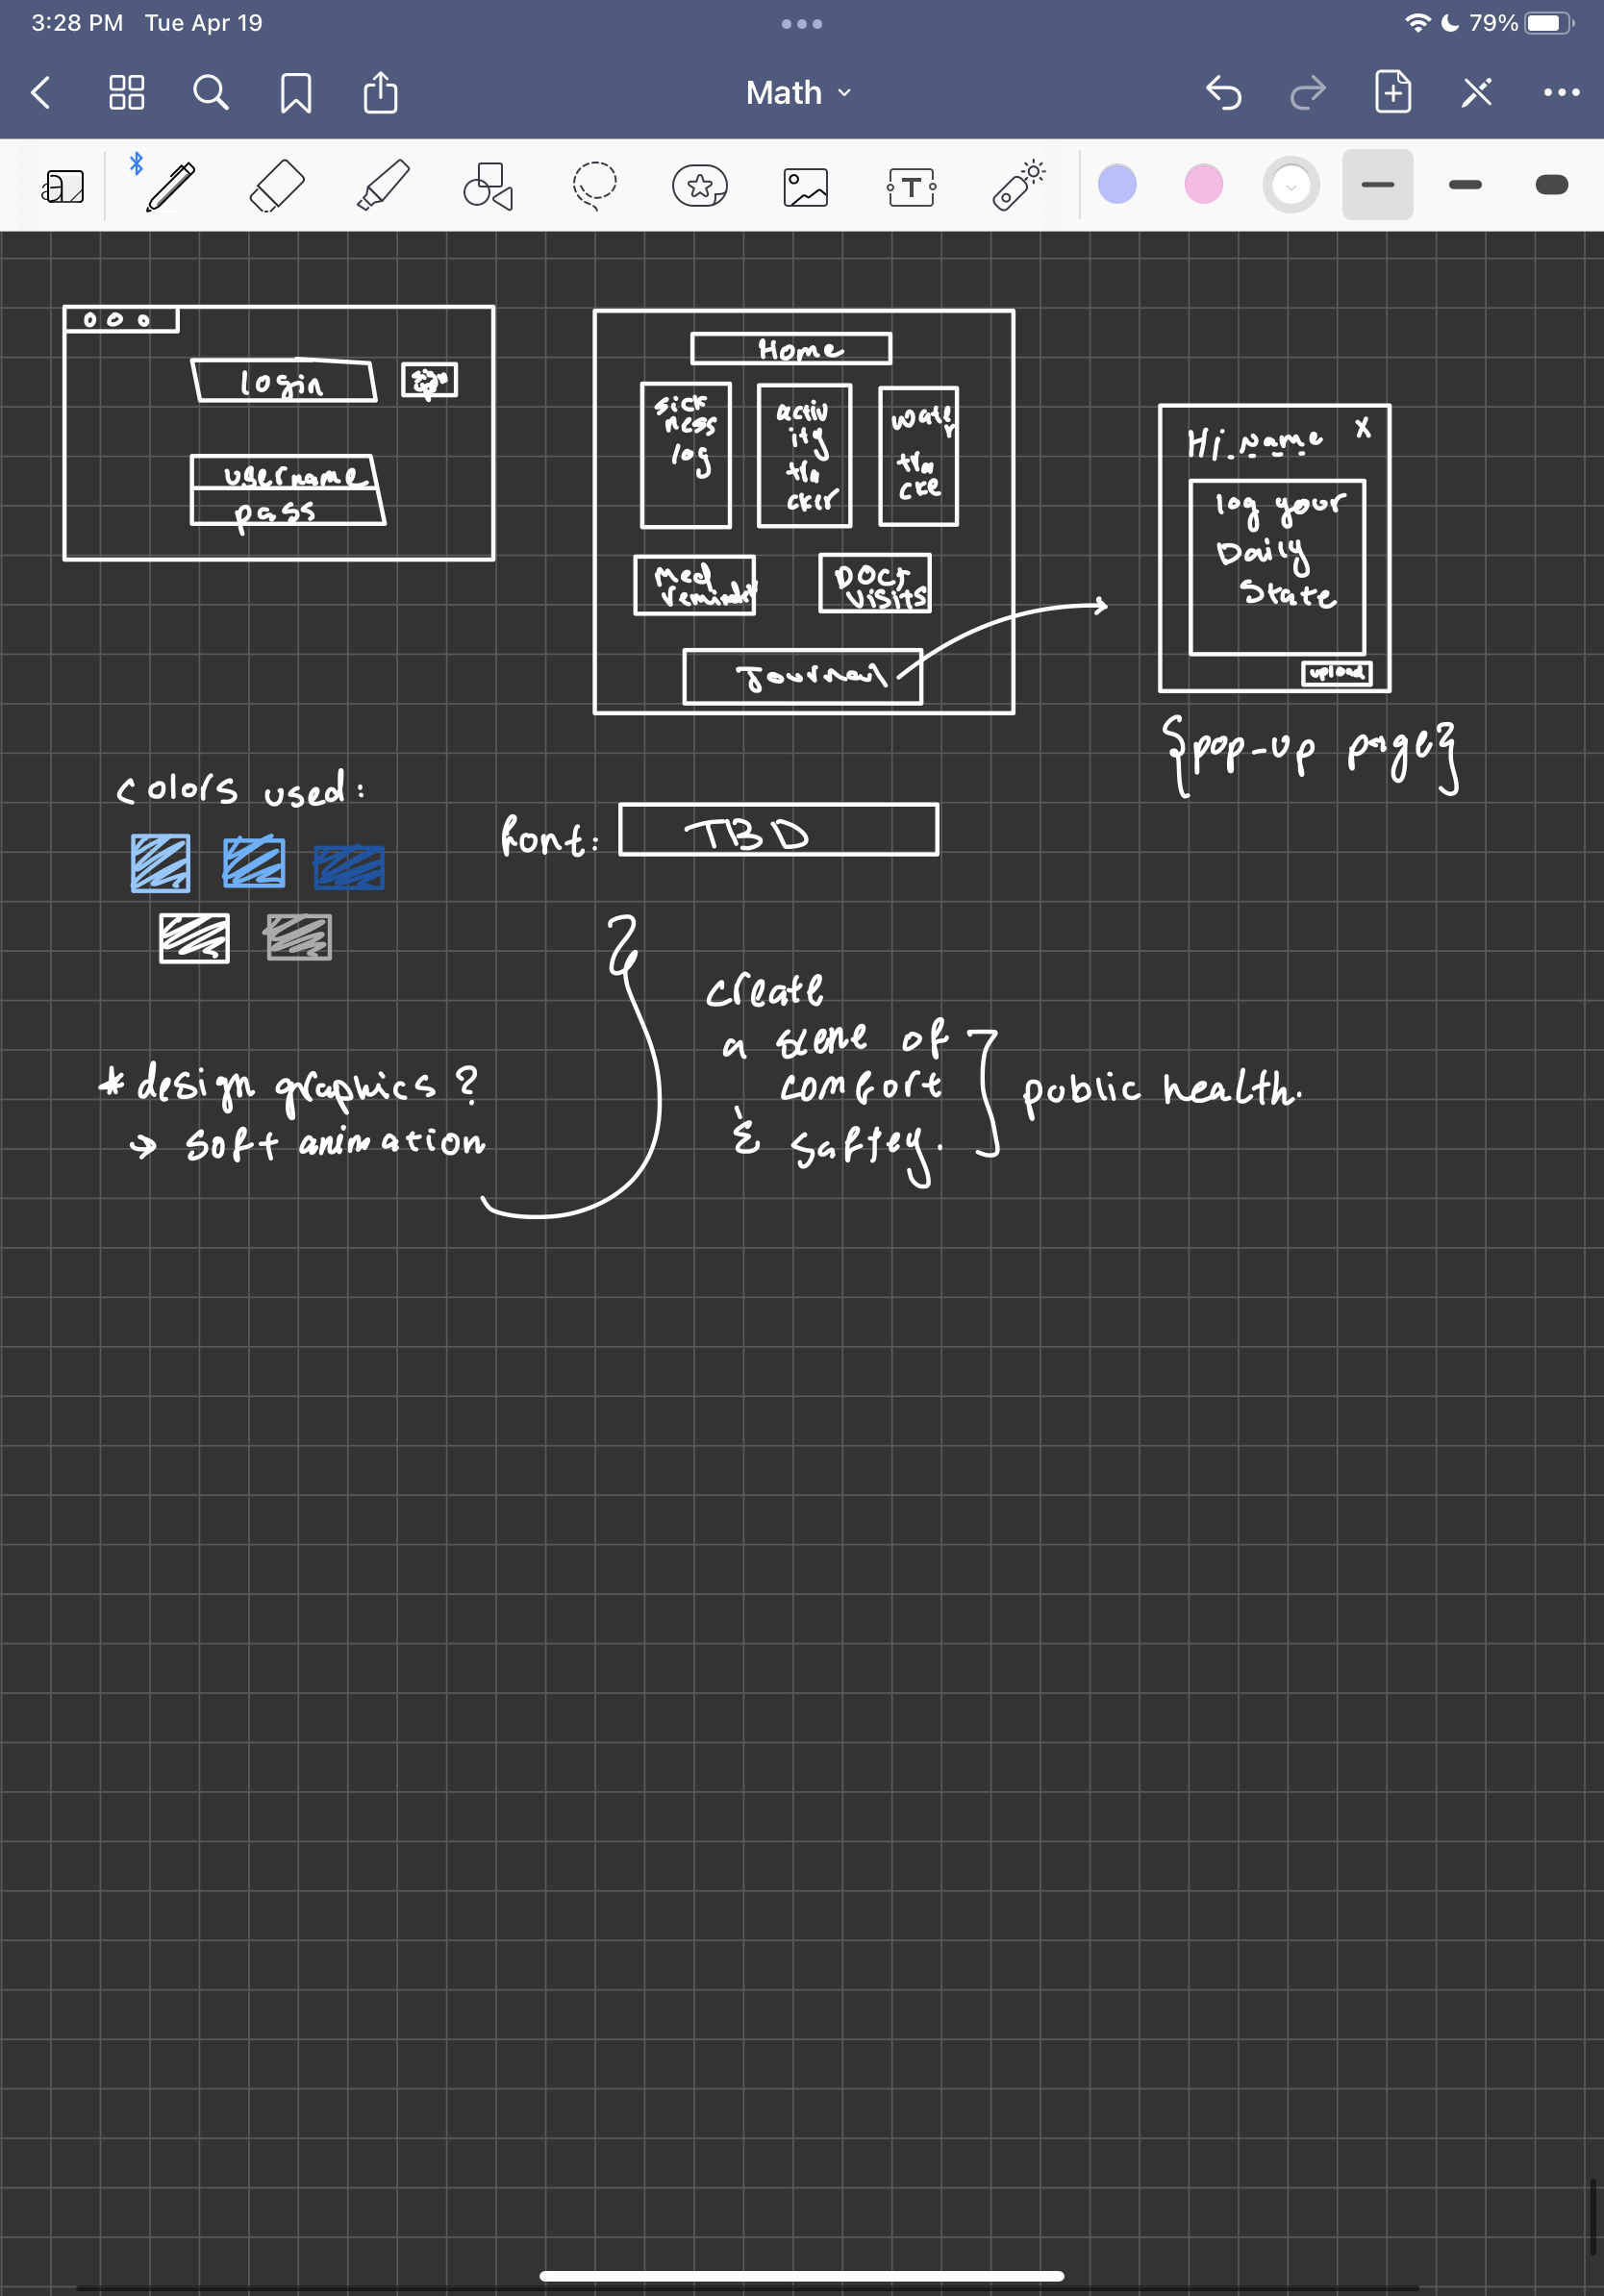 3:28 PM Tue Apr 19
79%
Math
T
login
sign up
username
pass
Home
sick
ness
log
activ
ity
tra
cker
wate
r
tra
cke
Med
remindr
Doct
visits
Journal
Hi, name X
log your
Daily
State
upload
{pop-up page}
colors used:
font: TBD
* design graphics?
→ soft animation
create
a scene of
comfort
& saftey.
public health.